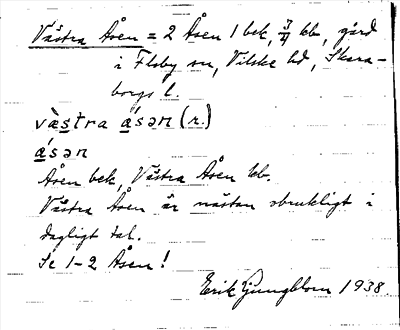 Västra Åsen = 2 Åsen 1 bek, 3/4 kb, gård
i Floby sn, Vilske hd, Skara-
borgs l.
västra ásən (r.)
ásən
Åsen bek, Västra Åsen kb.
Västra Åsen är nästan obrukligt i
dagligt tal.
Se 1-2 Åsen!
Erik Ljungblom 1938